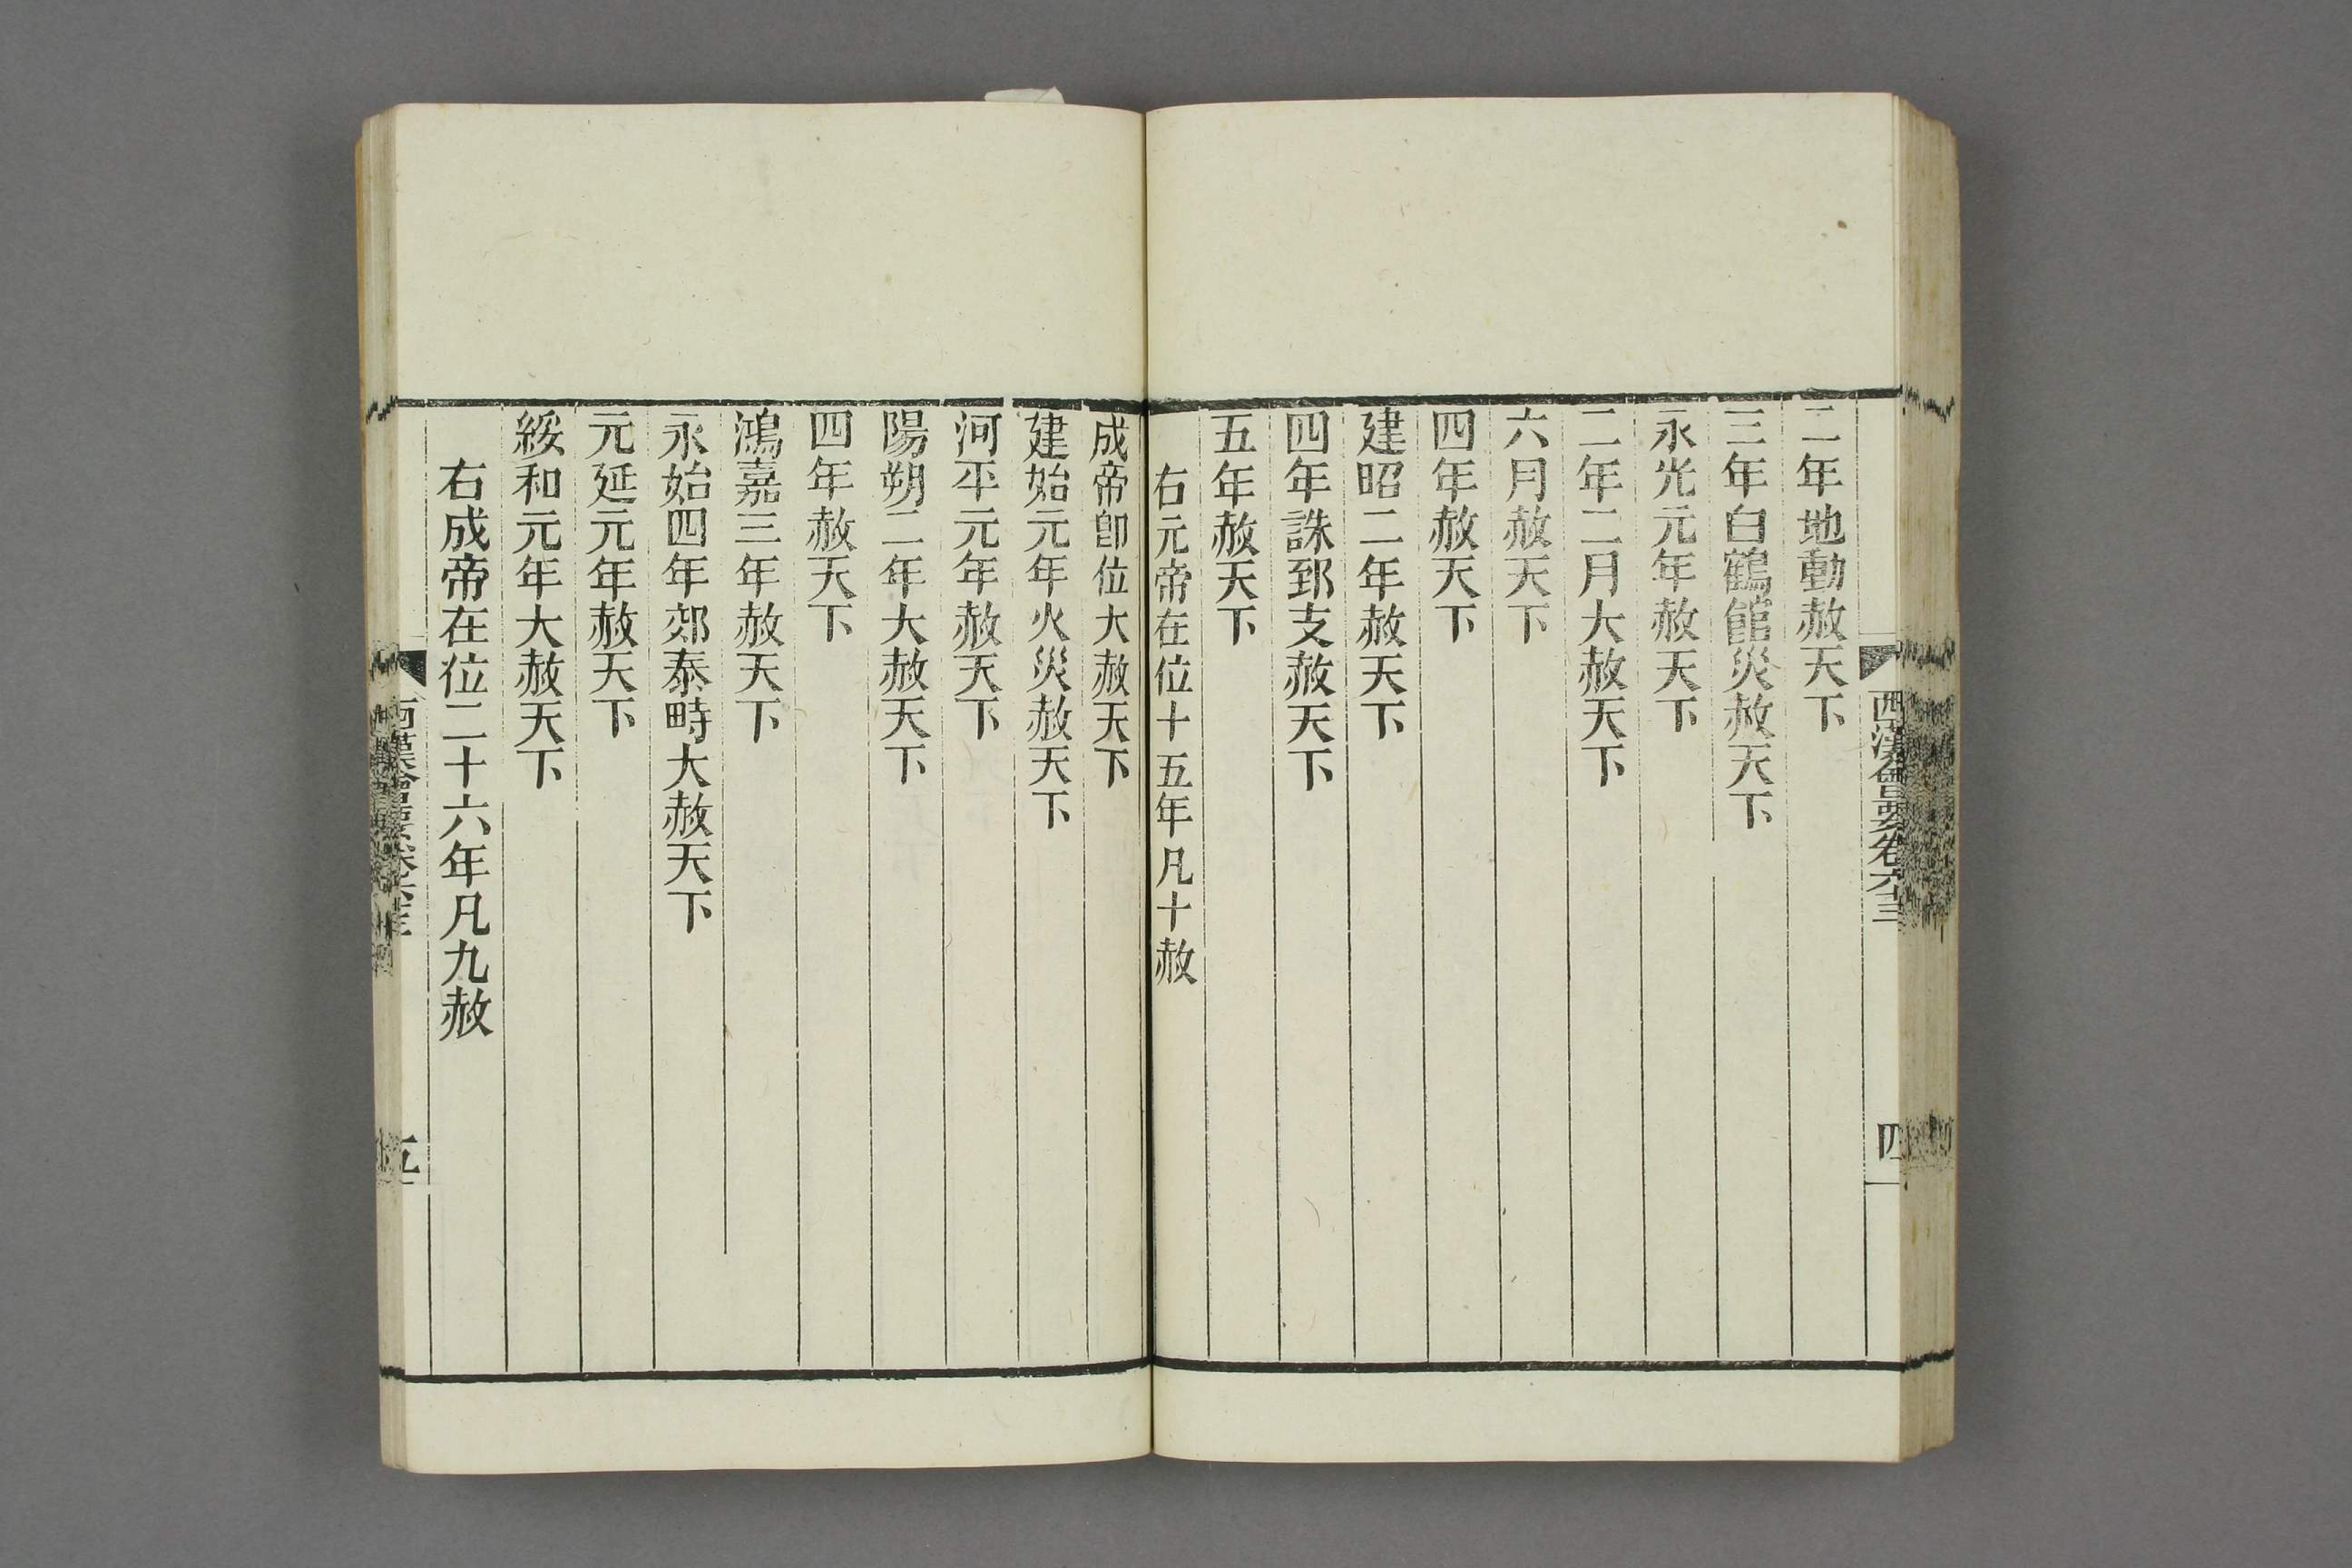 西漢會要卷六十三
四
二年地動赦天下
三年白鶴館災赦天下
永光元年赦天下
二年二月大赦天下
六月赦天下
四年赦天下
建昭二年赦天下
四年誅郅支赦天下
五年赦天下
右元帝在位十五年凡十赦
成帝卽位大赦天下
建始元年火災赦天下
河平元年赦天下
陽朔二年大赦天下
四年赦天下
鴻嘉三年赦天下
永始四年郊泰畤大赦天下
元延元年赦天下
綏和元年大赦天下
右成帝在位二十六年凡九赦
西漢會要卷六十三
五